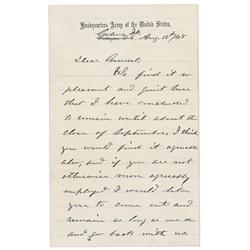 Headquarters Army of the United States,
Galena Ills. Aug. 18th 1868
Dear
We find it so
pleasant and quiet here
that I have concluded
to remain until about the
close of September. I think
you would find it agreeable
also, and if you are not
otherwise more agreeably
employed I would like
you to come out and
remain as long as we do
and go back with us.